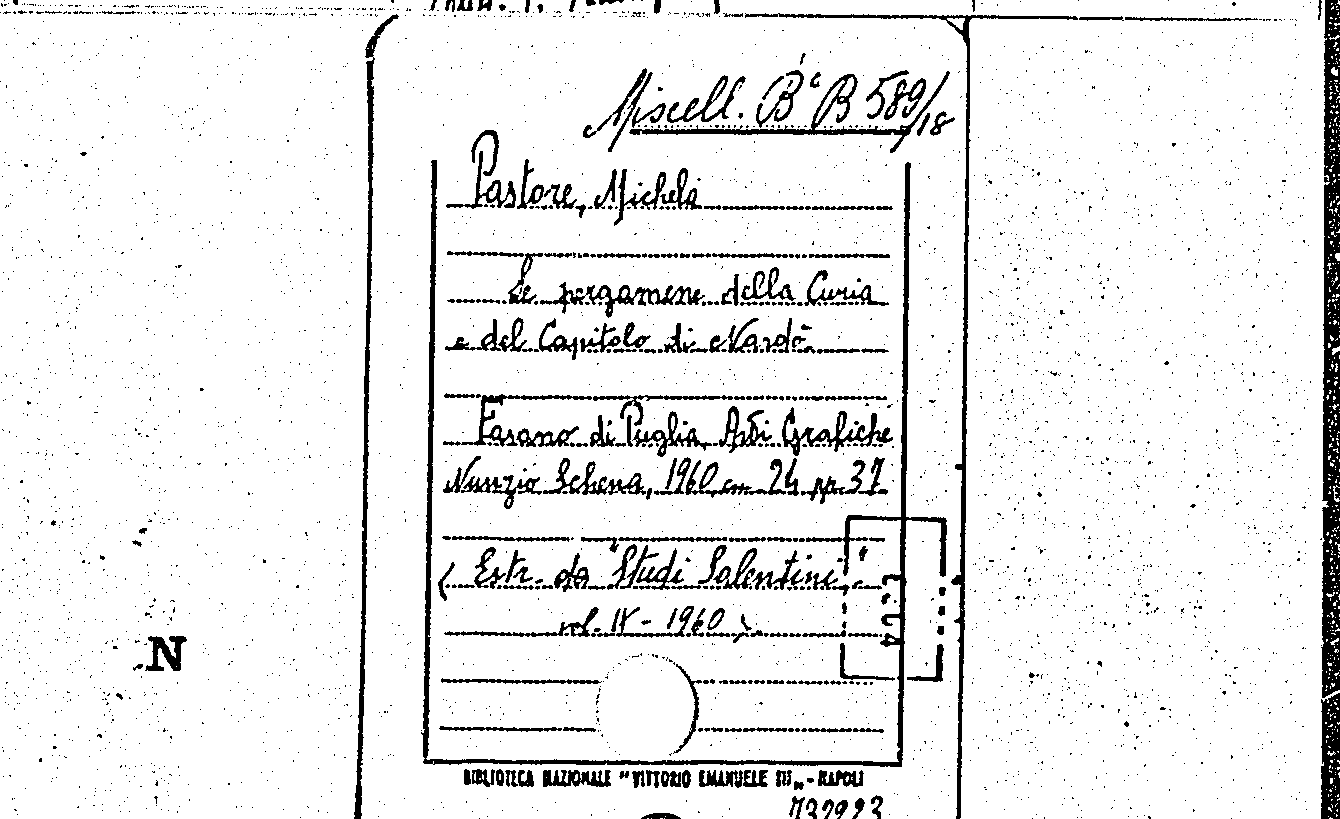 Miscell. Bª B 589/18
Pastore, Michela
Le pergamene della Curia
e del Capitolo di Nardò
Fasano di Puglia, Arti Grafiche
Nunzio Schena, 1960, cm 24, pp. 37
(Estr. da "Studi Salentini".
vol. IX - 1960).
N
BIBLIOTECA NAZIONALE "VITTORIO EMANUELE III„ - NAPOLI
732923